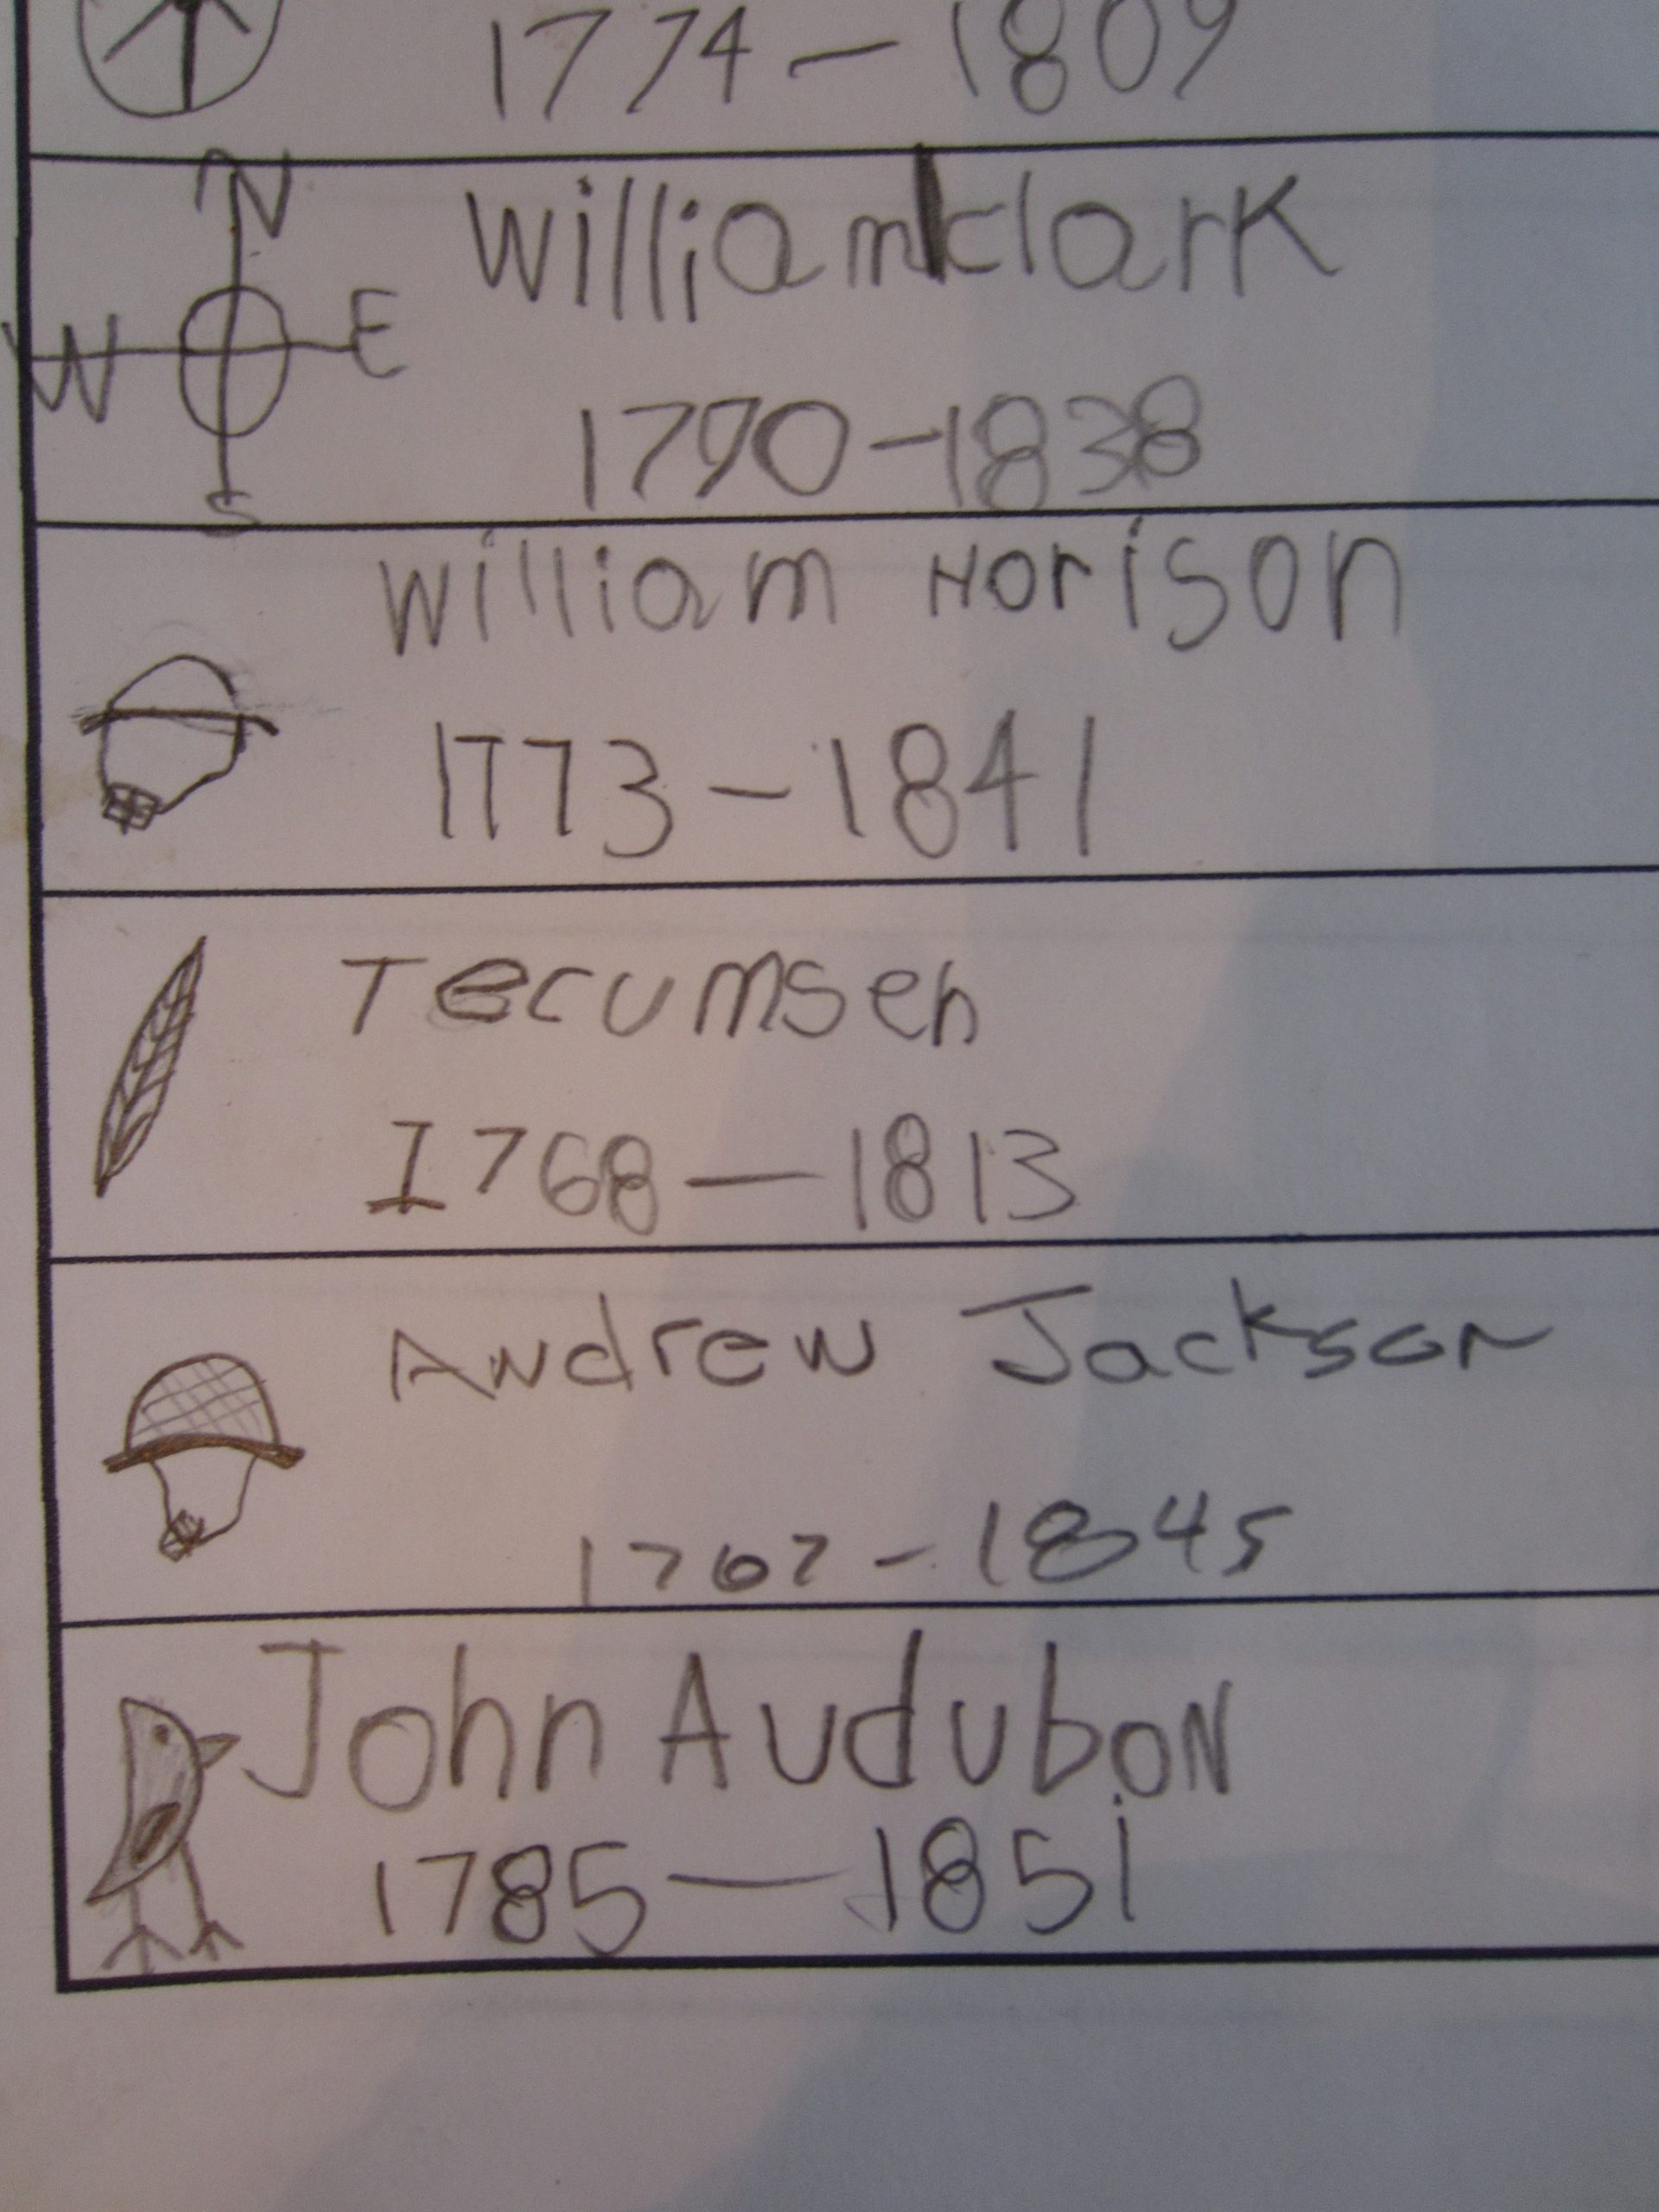 1774 - 1809
N
William Clark
W E
1790 - 1838
S
William Horison
1773 - 1841
Tecumseh
1768 - 1813
Andrew Jackson
1767 - 1845
John Audubon
1785 - 1851